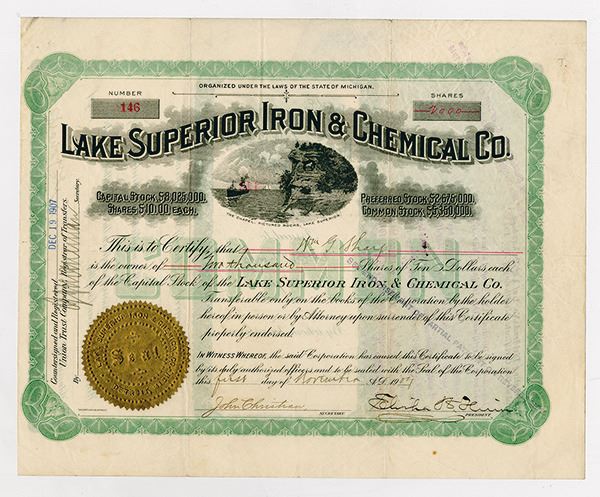 ORGANIZED UNDER THE LAWS OF THE STATE OF MICHIGAN.
NUMBER
146
SHARES
2000
LAKE SUPERIOR IRON & CHEMICAL CO.
CAPITAL STOCK, $8,025,000.
SHARES $10.00 EACH.
PREFERRED STOCK $2,675,000.
COMMON STOCK $5,350,000.
THE CHAPEL, PICTURED ROCKS, LAKE SUPERIOR.
This is to Certify, that Wm G. Sharp
is the owner of Two thousand Shares of Ten Dollars each
of the Capital Stock of the LAKE SUPERIOR IRON & CHEMICAL CO.
Transferable only on the books of the Corporation by the holder
hereof in person or by Attorney upon surrender of this Certificate
properly endorsed.
IN WITNESS WHEREOF, the said Corporation has caused this Certificate to be signed
by its duly authorized officers and to be sealed with the Seal of the Corporation
this first day of November A.D. 1907
John Christian
SECRETARY
PRESIDENT
Countersigned and Registered
Union Trust Company, Registrar of Transfers
By
Secretary.
DEC 19 1907
Seal